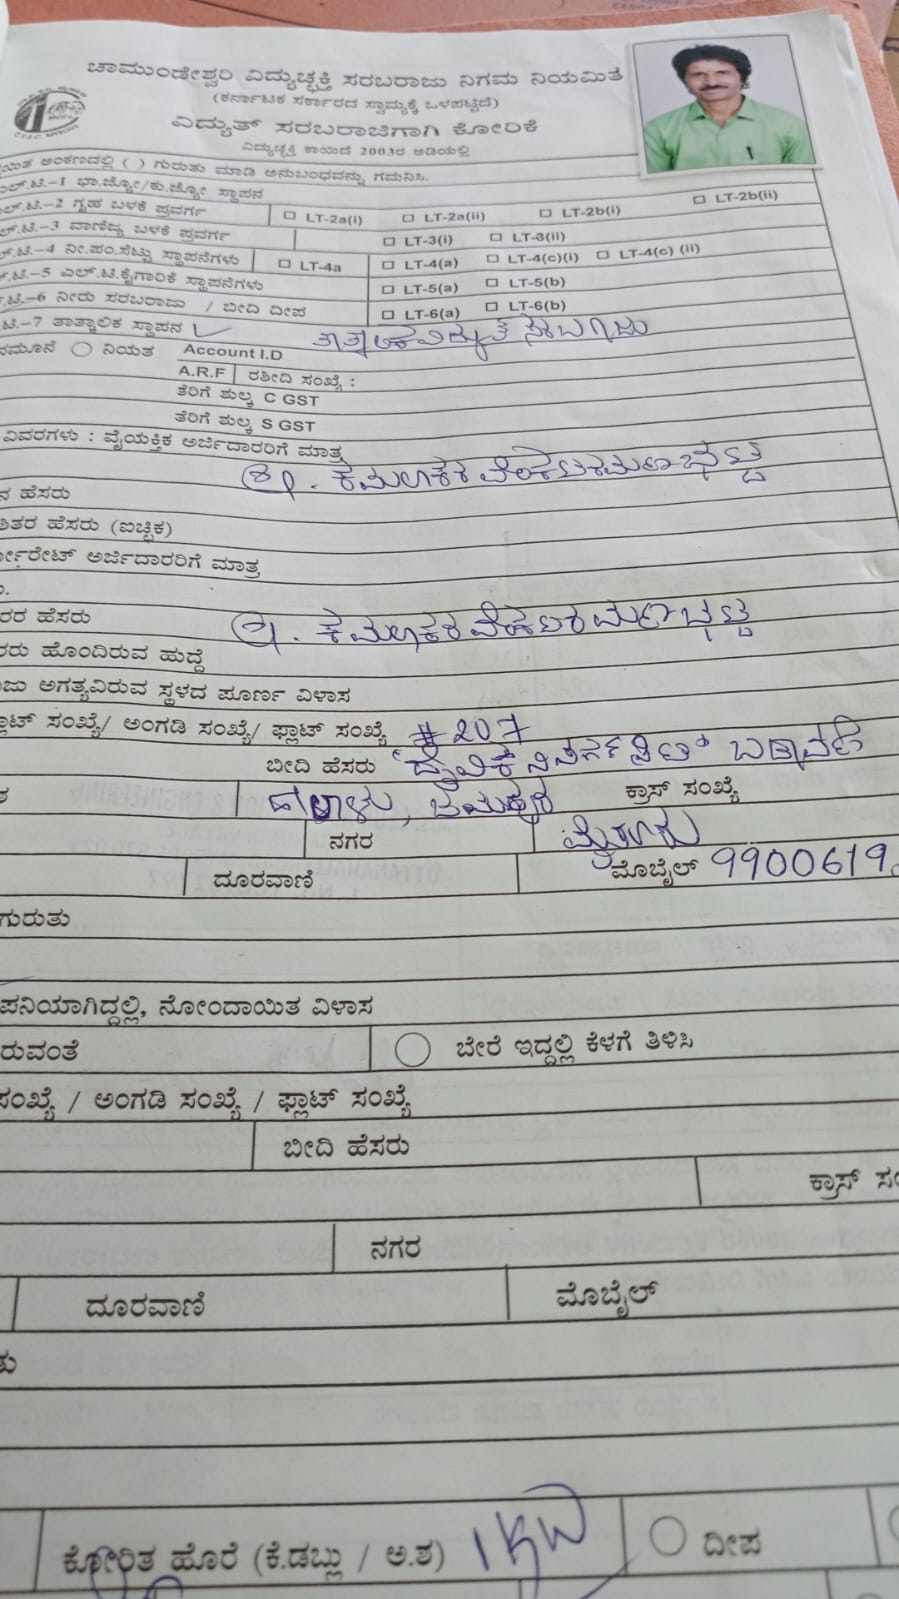 ಚಾಮುಂಡೇಶ್ವರಿ ವಿದ್ಯುಚ್ಛಕ್ತಿ ಸರಬರಾಜು ನಿಗಮ ನಿಯಮಿತ
(ಕರ್ನಾಟಕ ಸರ್ಕಾರದ ಸ್ವಾಮ್ಯಕ್ಕೆ ಒಳಪಟ್ಟಿದೆ)
ವಿದ್ಯುತ್ ಸರಬರಾಜಿಗಾಗಿ ಕೋರಿಕೆ
ವಿದ್ಯುಚ್ಛಕ್ತಿ ಕಾಯಿದೆ 2003ರ ಅಡಿಯಲ್ಲಿ
ಅಂಕಣದಲ್ಲಿ ( ) ಗುರುತು ಮಾಡಿ ಅನುಬಂಧವನ್ನು ಗಮನಿಸಿ.
ಎಲ್.ಟಿ.-1 ಭಾ.ಜ್ಯೋ/ಕು.ಜ್ಯೋ ಸ್ಥಾಪನ
ಎಲ್.ಟಿ.-2 ಗೃಹ ಬಳಕೆ ಪ್ರವರ್ಗ LT-2a(i) LT-2a(ii) LT-2b(i) LT-2b(ii)
ಟಿ.-3 ವಾಣಿಜ್ಯ ಬಳಕೆ ಪ್ರವರ್ಗ LT-3(i) LT-3(ii)
ಟಿ.-4 ನೀ.ಪಂ.ಸೆಟ್ಟು ಸ್ಥಾಪನೆಗಳು LT-4a LT-4(a) LT-4(c)(i) LT-4(c) (ii)
ಟಿ.-5 ಎಲ್.ಟಿ.ಕೈಗಾರಿಕೆ ಸ್ಥಾಪನೆಗಳು LT-5(a) LT-5(b)
ಟಿ.-6 ನೀರು ಸರಬರಾಜು / ಬೀದಿ ದೀಪ LT-6(a) LT-6(b)
ಟಿ.-7 ತಾತ್ಕಾಲಿಕ ಸ್ಥಾಪನ
ನಮೂನೆ ನಿಯತ Account I.D
A.R.F ರಶೀದಿ ಸಂಖ್ಯೆ :
ತೆರಿಗೆ ಶುಲ್ಕ C GST
ತೆರಿಗೆ ಶುಲ್ಕ S GST
ವಿವರಗಳು : ವೈಯಕ್ತಿಕ ಅರ್ಜಿದಾರರಿಗೆ ಮಾತ್ರ
ಶ್ರೀ. ಕಮಲಾಕರ ವೆಂಕಟರಮಣ ಭಟ್ಟ
ನ ಹೆಸರು
ತರ ಹೆಸರು (ಐಚ್ಛಿಕ)
ರ್ಪೊರೇಟ್ ಅರ್ಜಿದಾರರಿಗೆ ಮಾತ್ರ
ರರ ಹೆಸರು ಶ್ರೀ. ಕಮಲಾಕರ ವೆಂಕಟರಮಣ ಭಟ್ಟ
ರರು ಹೊಂದಿರುವ ಹುದ್ದೆ
ಜು ಅಗತ್ಯವಿರುವ ಸ್ಥಳದ ಪೂರ್ಣ ವಿಳಾಸ
ಸಂಖ್ಯೆ/ ಅಂಗಡಿ ಸಂಖ್ಯೆ/ ಫ್ಲಾಟ್ ಸಂಖ್ಯೆ # 207
ಬೀದಿ ಹೆಸರು ಬಡಾವಣೆ
ಕ್ರಾಸ್ ಸಂಖ್ಯೆ
ನಗರ ಮೈಸೂರು
ದೂರವಾಣಿ ಮೊಬೈಲ್ 9900619
ಗುರುತು
ಪನಿಯಾಗಿದ್ದಲ್ಲಿ, ನೋಂದಾಯಿತ ವಿಳಾಸ
ರುವಂತೆ ಬೇರೆ ಇದ್ದಲ್ಲಿ ಕೆಳಗೆ ತಿಳಿಸಿ
ಸಂಖ್ಯೆ / ಅಂಗಡಿ ಸಂಖ್ಯೆ / ಫ್ಲಾಟ್ ಸಂಖ್ಯೆ
ಬೀದಿ ಹೆಸರು
ಕ್ರಾಸ್ ಸಂ
ನಗರ
ದೂರವಾಣಿ ಮೊಬೈಲ್
ತು
ಕೋರಿತ ಹೊರೆ (ಕೆ.ಡಬ್ಲು / ಅ.ಶ) 1KW ದೀಪ